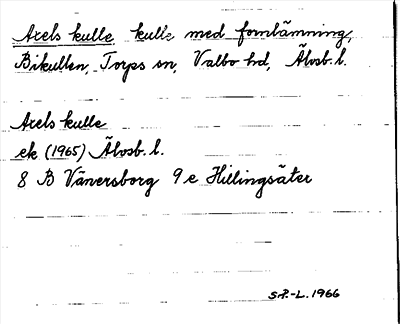 Axels kulle, kulle med fornlämning,
Bikullen, Torps sn, Valbo hd, Älvsb. l.
Axels kulle
ek (1965) Älvsb. l.
8 B Vänersborg 9 e Hillingsäter
S.P.-L. 1966